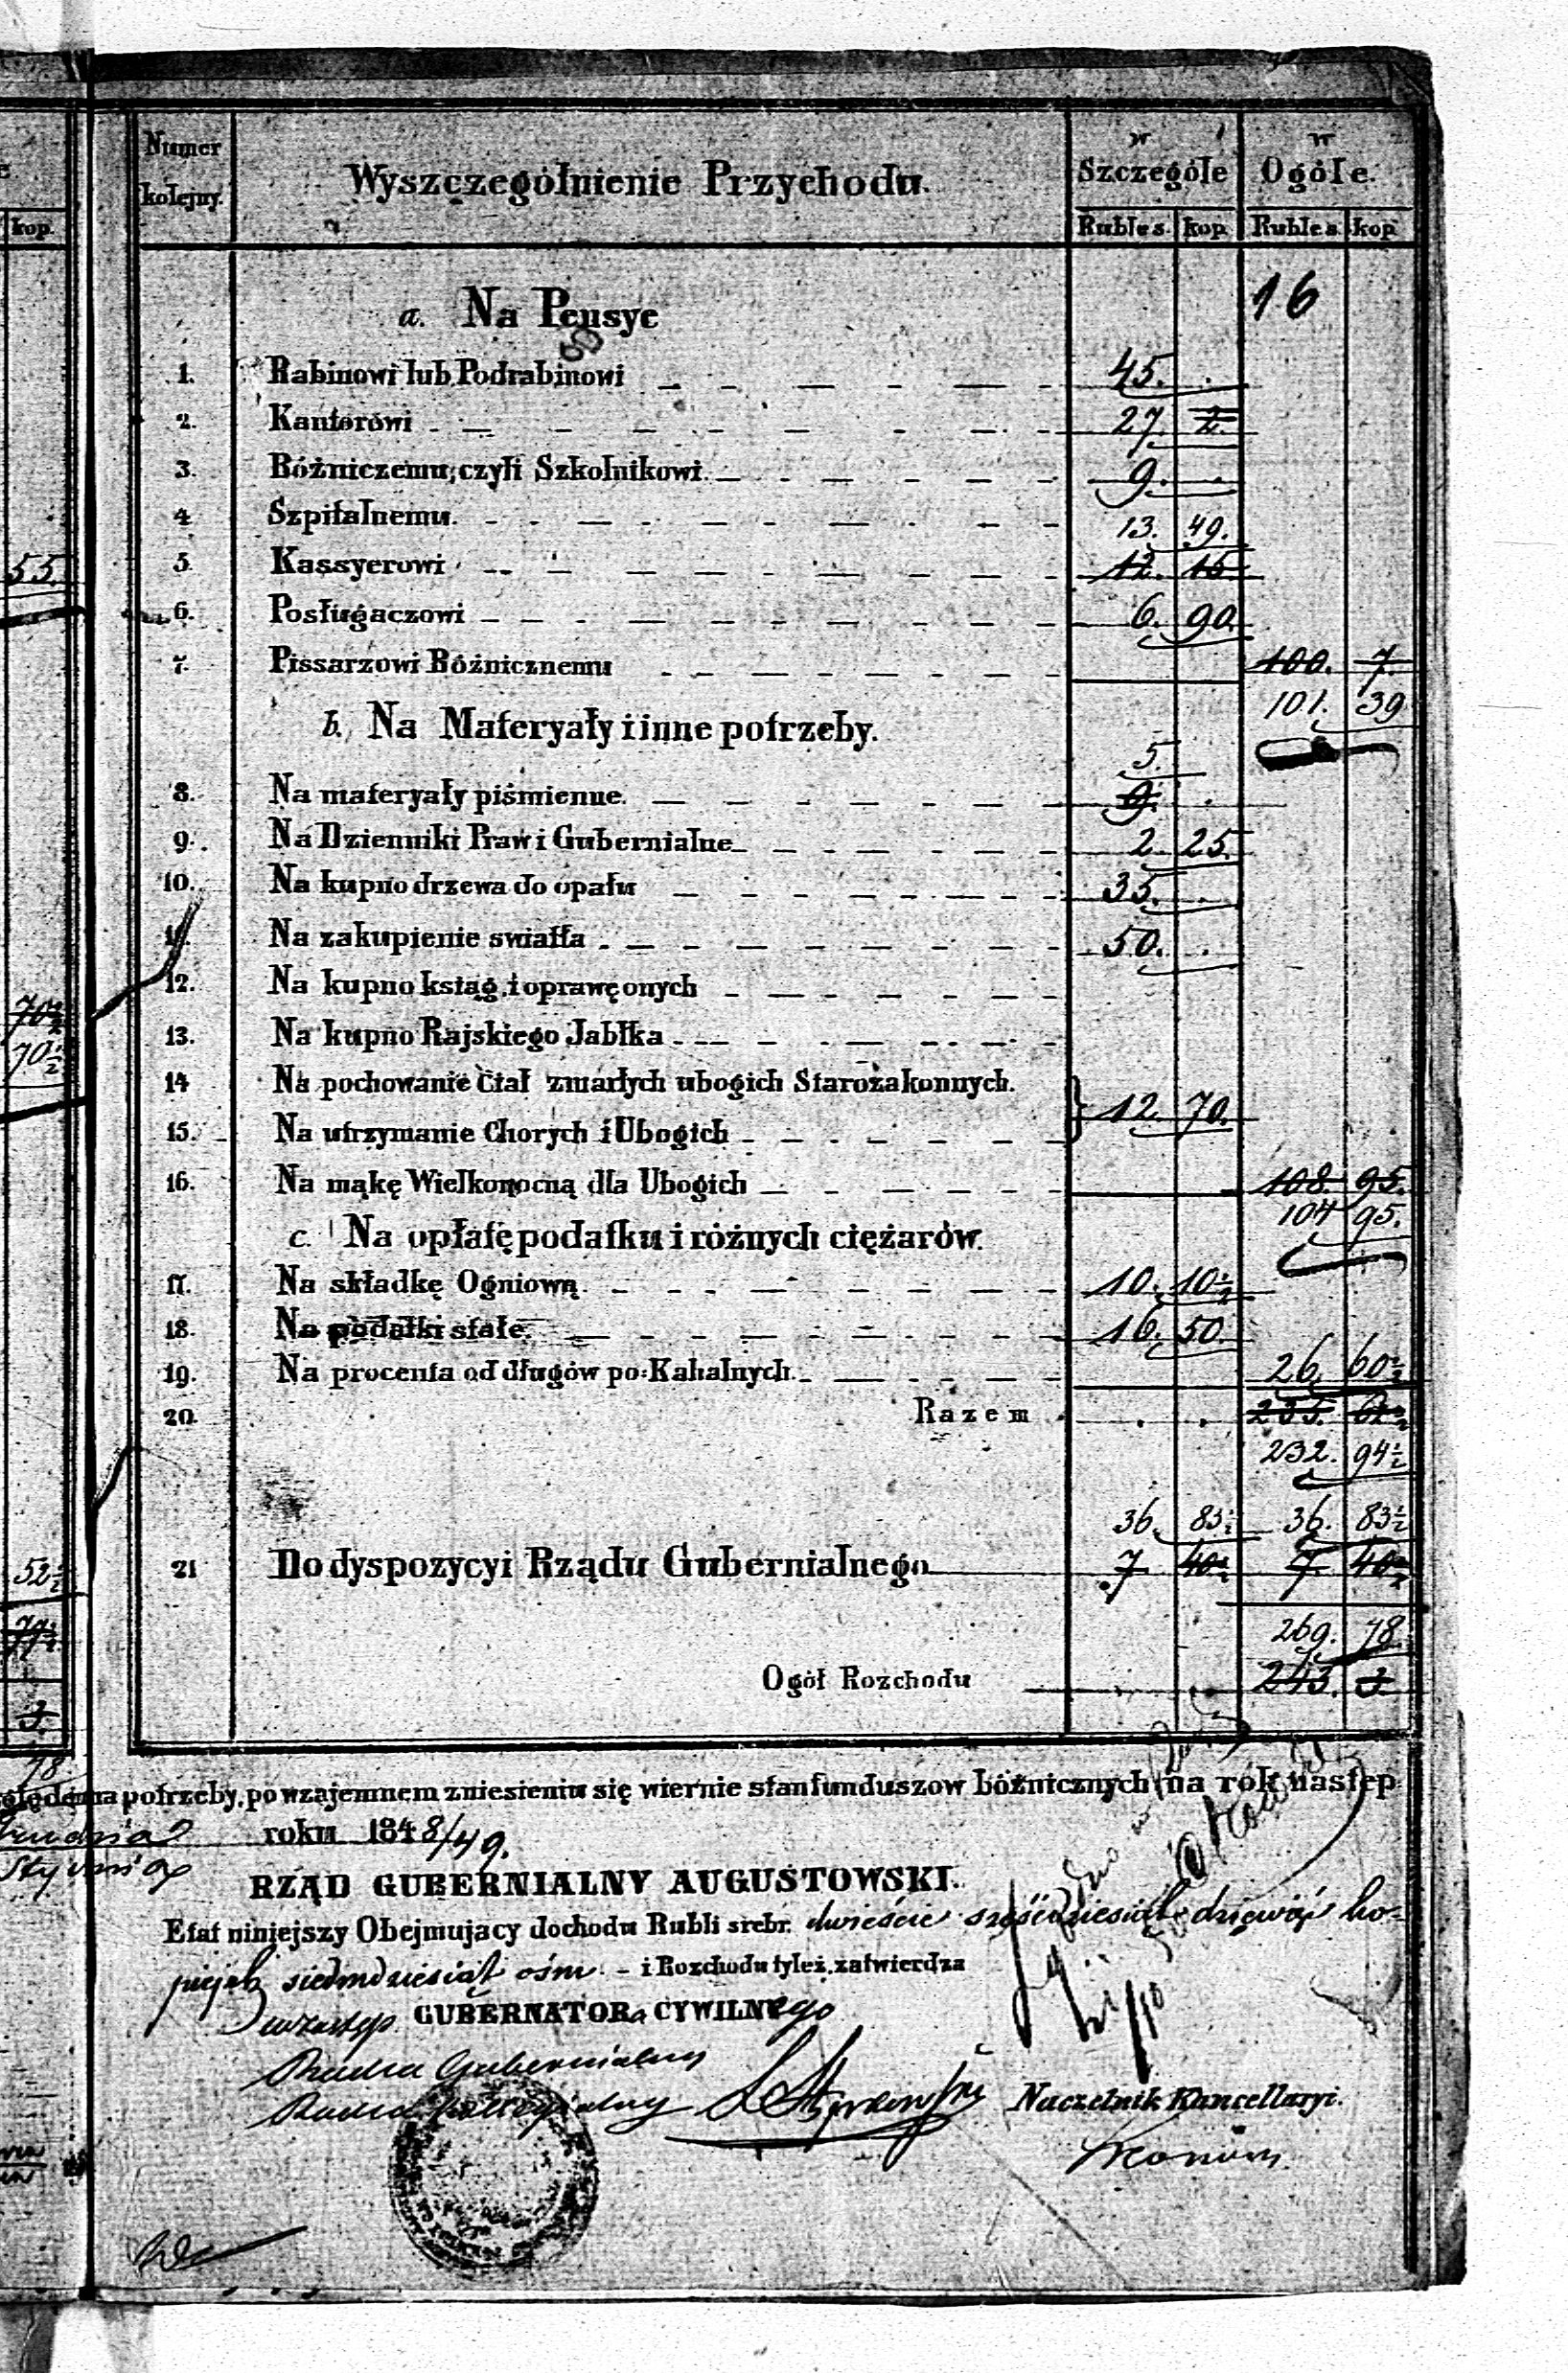 Numer kolejny.
Wyszczegółnienie Przychodu.
w Szczególe
w Ogóle.
kop.
Rubles. kop. Rubles. kop
16
a. Na Pensye
1. Rabinowi lub Podrabinowi 45. .
2. Kantorowi 27. 2.
3. Bóżniczemu, czyli Szkolnikowi. 9. .
4. Szpitalnemu.
13. 49.
5. Kassyerowi 12. 15
55.
6. Posługaczowi 6. 90.
7. Pissarzowi Bóżnicznemu 100. 7.
101. 39
b. Na Materyały i inne potrzeby.
5.
8. Na materyały piśmienne. 9. .
9. Na Dzienniki Praw i Gubernialne 2. 25.
10. Na kupno drzewa do opału 35. .
11. Na zakupienie swiatła 50. .
12. Na kupno ksiąg i oprawę onych
70½
13. Na kupno Rajskiego Jabłka
70½
14 Na pochowanie Ciał zmarłych ubogich Starozakonnych.
12. 70.
15. Na utrzymanie Chorych i Ubogich
16. Na mąkę Wielkonocną dla Ubogich 108. 95.
104 95.
c. Na opłatę podatku i różnych ciężarów.
17. Na składkę Ogniową 10. 10½
18. Na podatki stałe. 16. 50.
19. Na procenta od długów po: Kahalnych. 26. 60½
20. Razem . . 235. 62½
232. 94½
36. 83½ 36. 83½
21 Do dyspozycyi Rządu Gubernialnego 7 40½ 7 40½
52½
77½
269. 78
Ogół Rozchodu 243. 3.
3.
78
na potrzeby, po wzajemnem zniesieniu się wiernie stan funduszow bóżnicznych na rok następ.
roku 1848/49.
RZĄD GUBERNIALNY AUGUSTOWSKI.
Etat niniejszy Obejmujący dochodu Rubli srebr. dwieście sześćdziesiąt dziewięć ko-
piejek siedmdziesiąt ośm. – i Rozchodu tyleż, zatwierdza
w zastęp. GUBERNATORa CYWILNego
Radca Gubernialny
Radca Kollegialny
Naczelnik Kancellaryi.